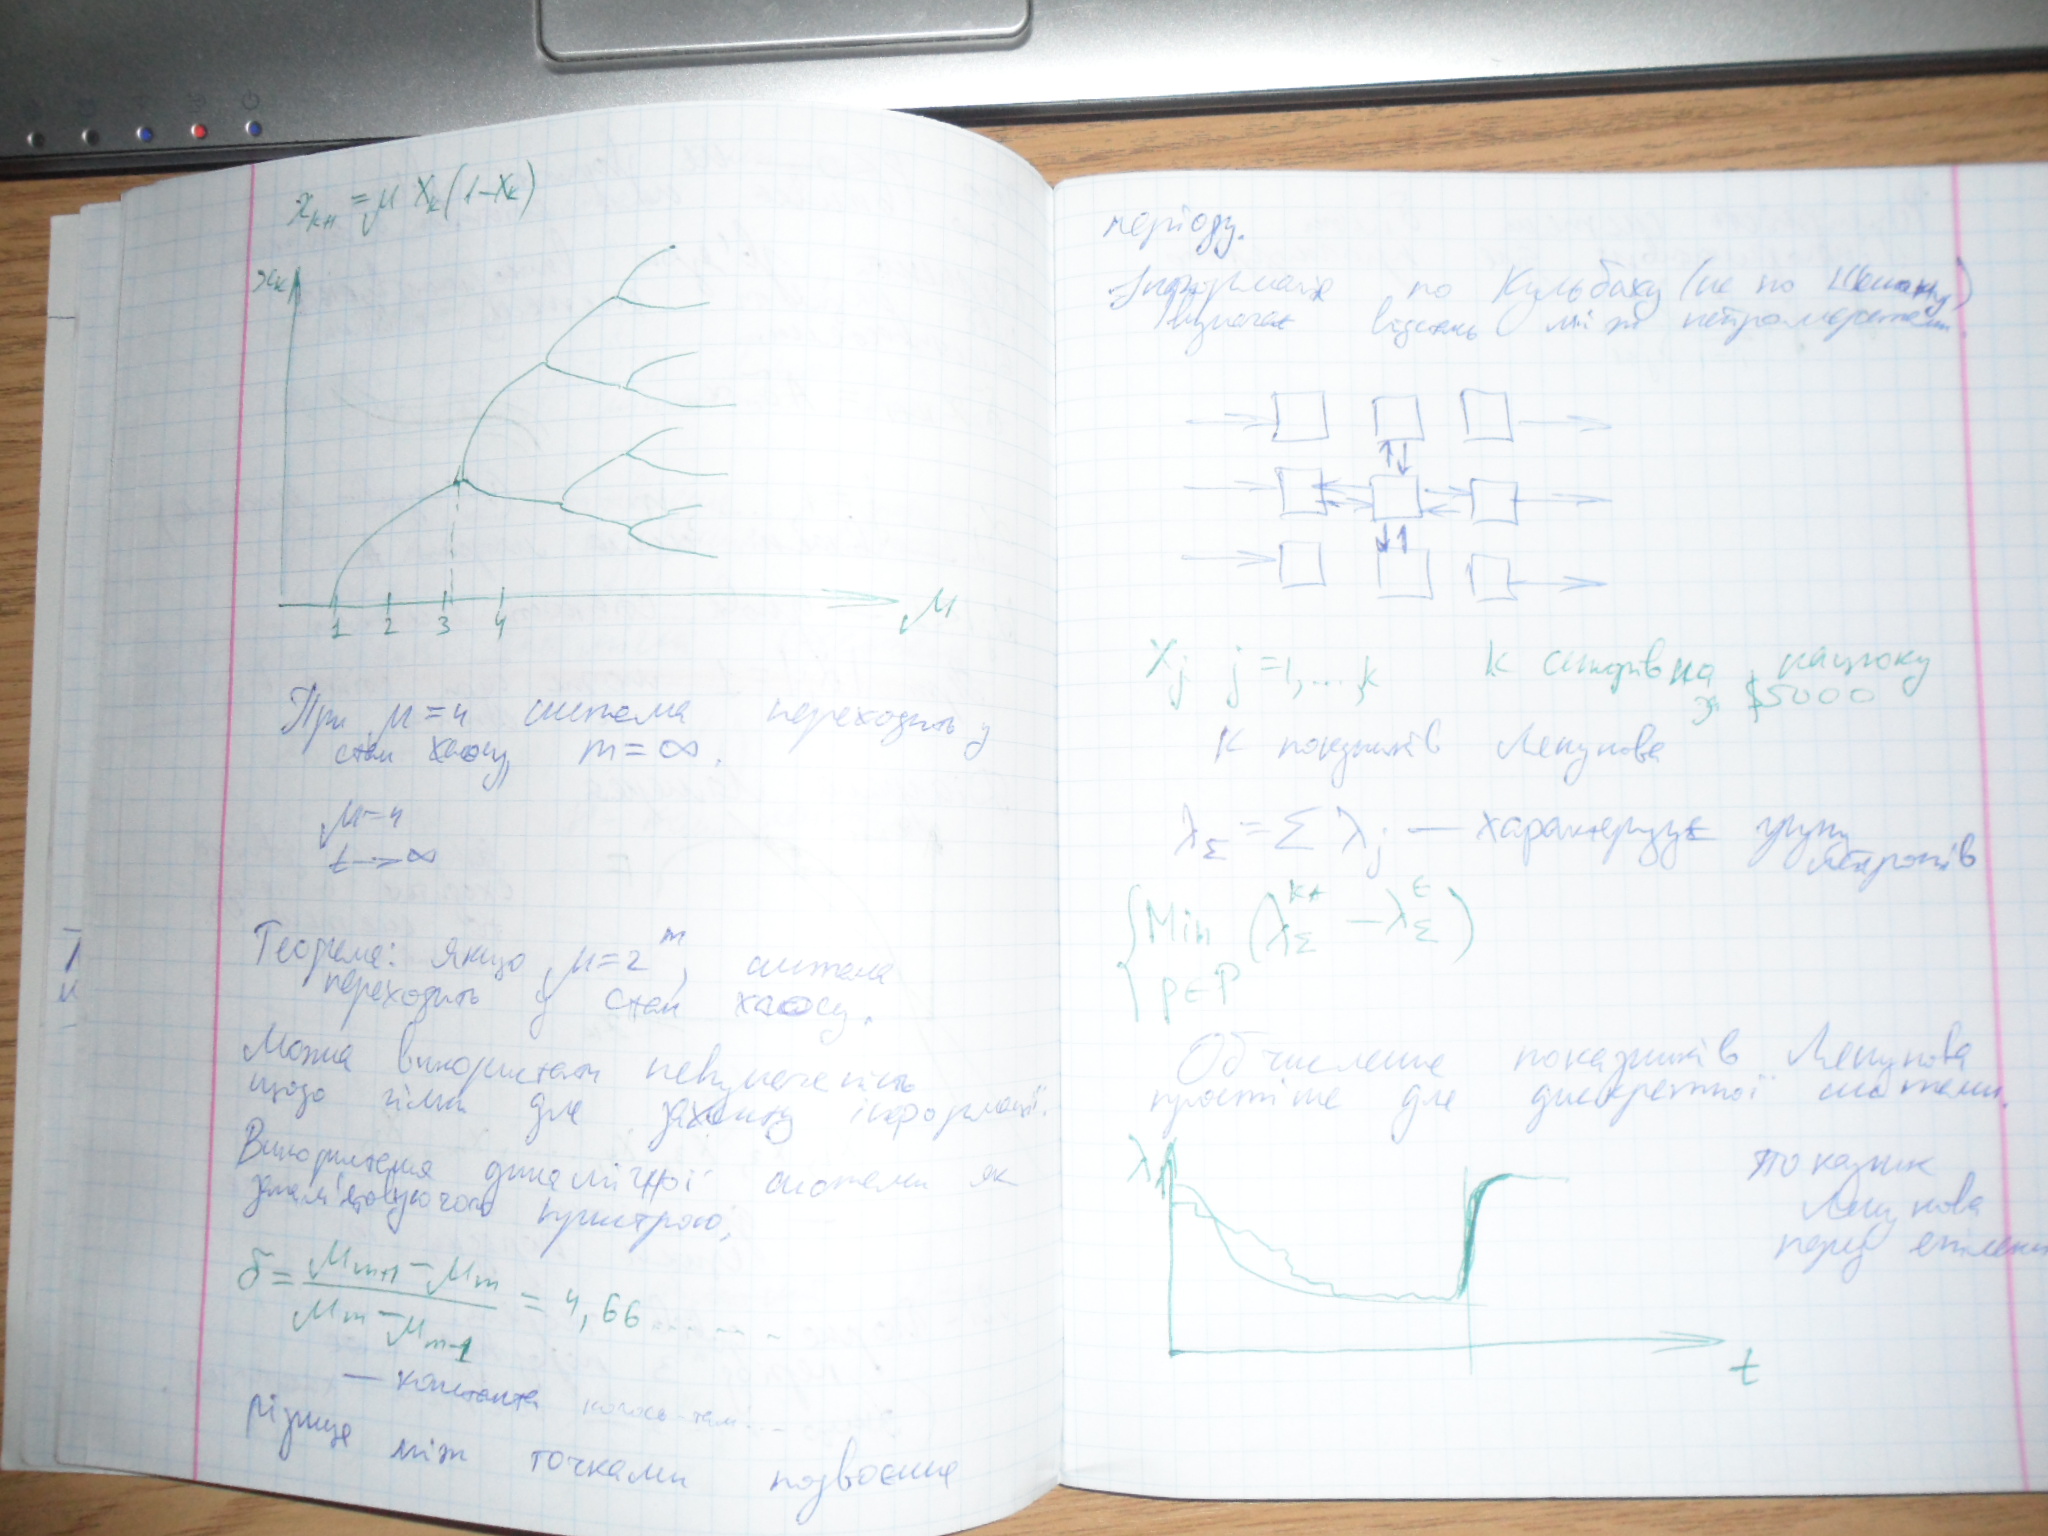 x_{k+1} = μ x_k (1 - x_k)
x_k
1 2 3 4 μ
При μ = 4 система переходить у
стан хаосу, m = ∞.
μ = 4
t → ∞
Теорема: якщо μ = 2^m, система
переходить у стан хаосу.
Можна використати невизначеність
щодо гілки для захисту інформації.
Використання динамічної системи як
запам'ятовуючого пристрою;
δ = (μ_{m+1} - μ_m) / (μ_m - μ_{m-1}) = 4,66......
— константа когось-там...
різниця між точками подвоєння
періоду.
Інформація по Кульбаку (не по Шенону)
визначає відстань між нейромережами.
x_j j = 1, ..., k k на
за $5000
k показників Ляпунова
λ_Σ = Σ λ_j — характеризує групу
нейронів
Min (λ_Σ - λ_Σ)
p ∈ P
Обчислення показників Ляпунова
простіше для дискретної системи.
λ
показник
Ляпунова
перед
t